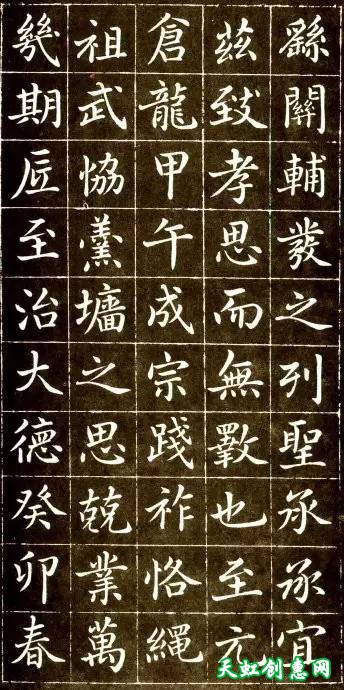 繇關輔發之列聖承承宜
茲致孝思而無斁也至元
倉龍甲午成宗踐祚恪繩
祖武協羹墻之思兢業萬
幾期厎至治大德癸卯春
天虹创意网